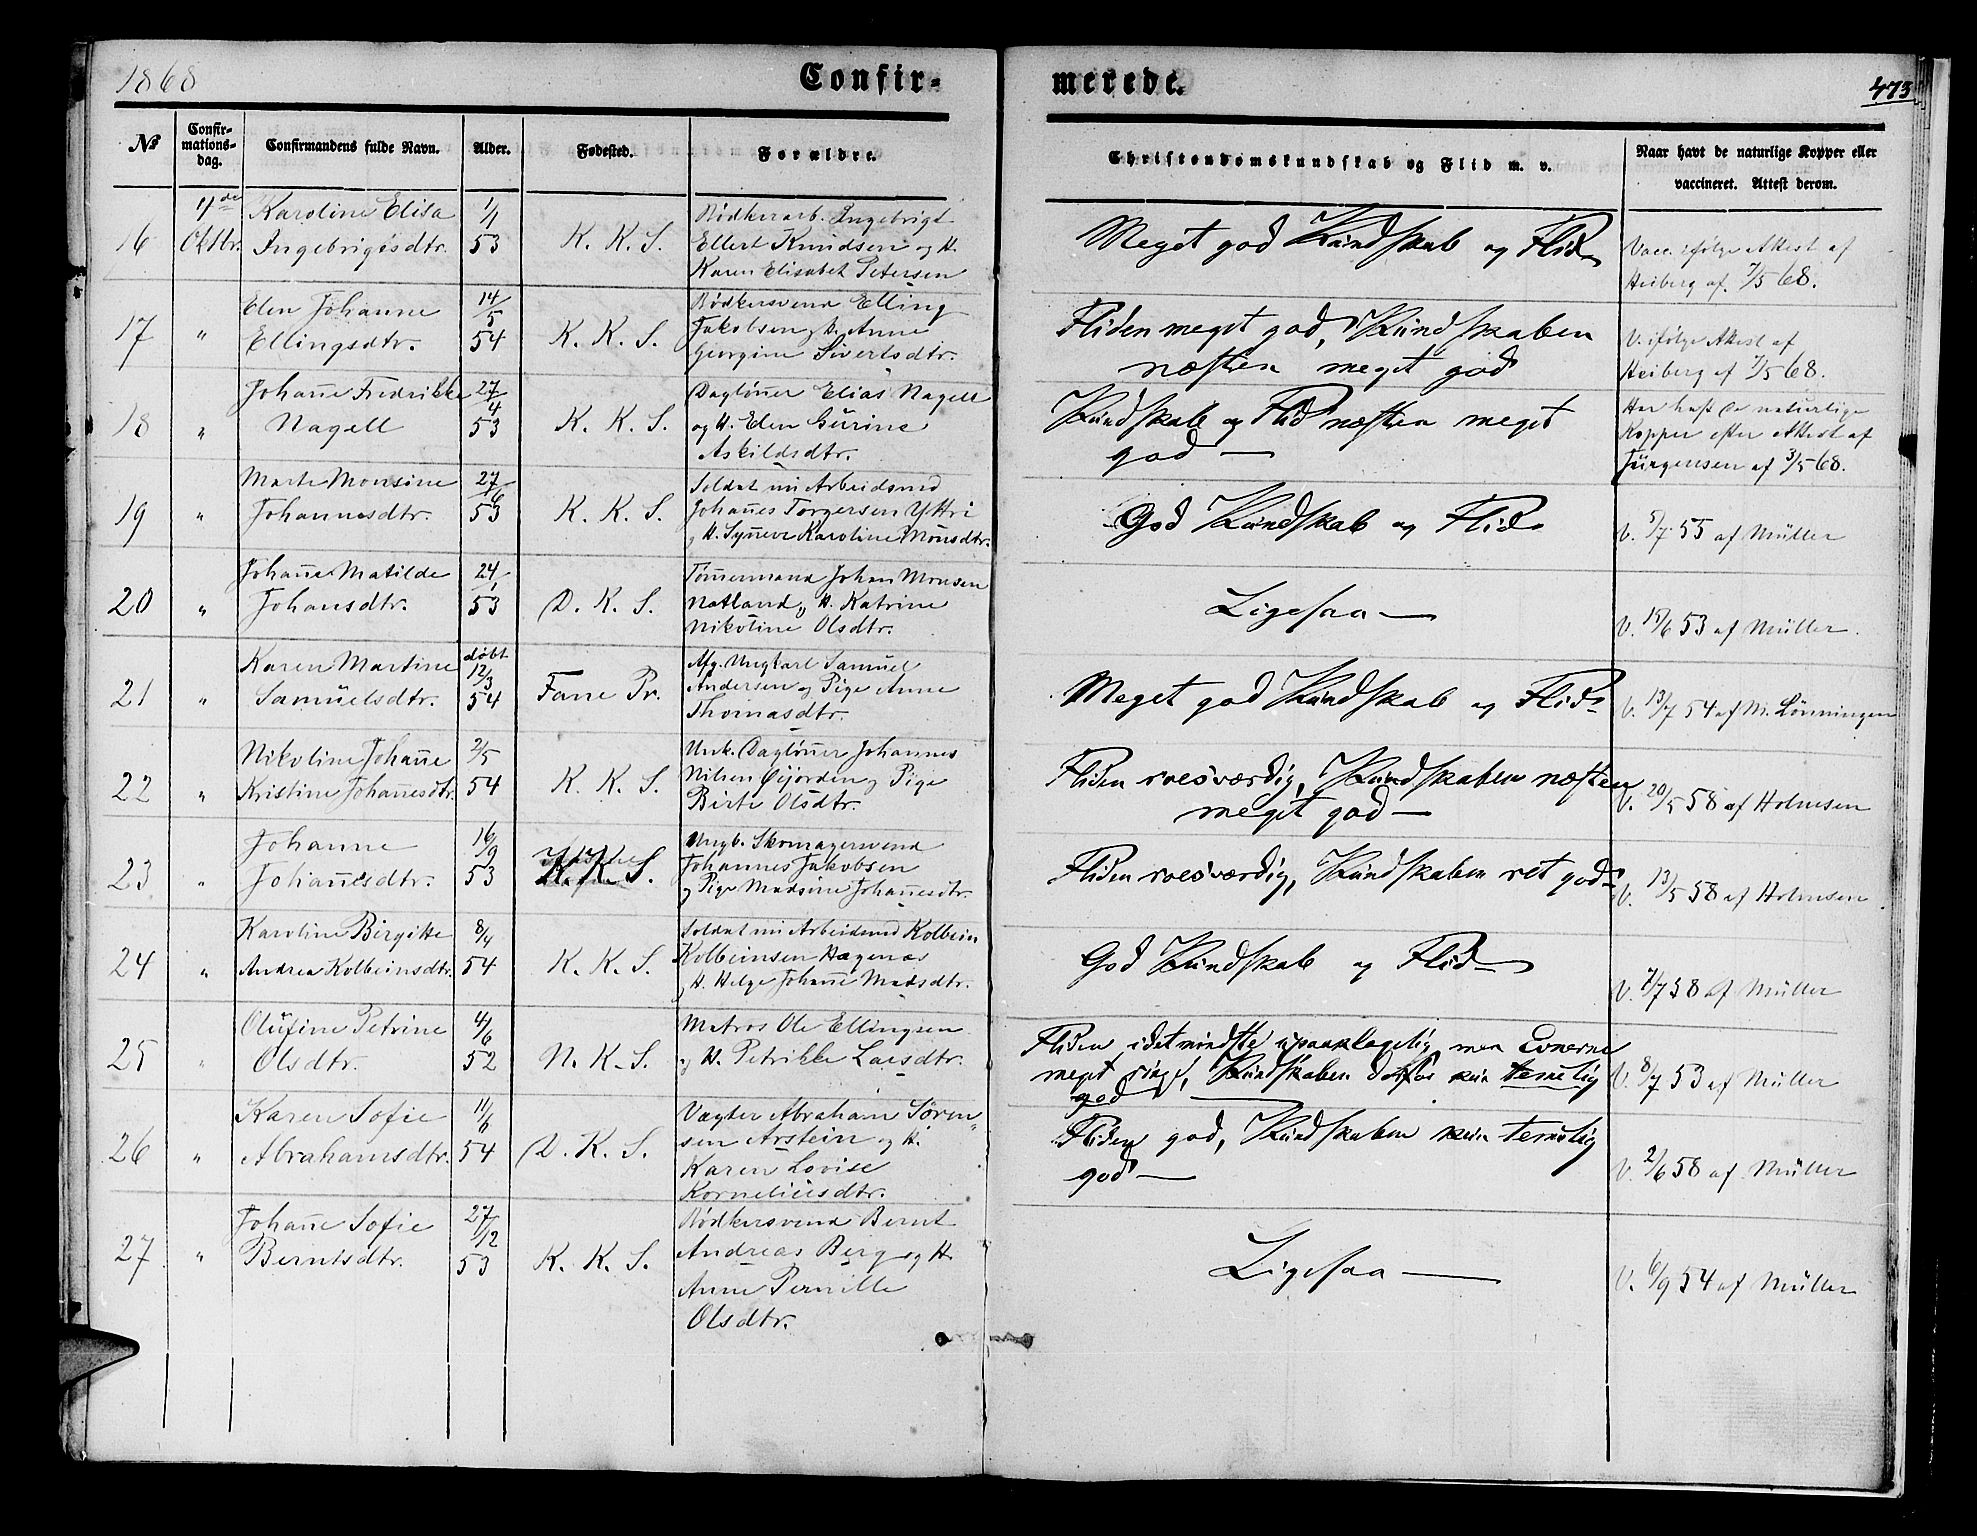 1868
Confir-
merede.
473
No
Confir-
mations-
dag.
Confirmandens fulde Navn.
Alder.
Fødested.
Forældre.
Christendomskundskab og Flid m. v.
Naar havt de naturlige Kopper eller
vaccineret. Attest derom.
16
4de
Oktbr.
Karoline Elisa
Ingebrigtsdtr.
1/1
53
K. K. S.
Bødkerarb. Ingebrigt
Ellert Knudsen og H.
Karen Elisabet Petersen
Meget god Kundskab og Flid
Vacc. ifølge Attest af
Heiberg af 7/5 68.
17
"
Elen Johanne
Ellingsdtr.
14/5
54
K. K. S.
Bødkersvend Elling
Jakobsen og H. Anne
Georgine Sivertsdtr.
Fliden meget god, Kundskaben
næsten meget god
V. ifølge Attest af
Heiberg af 7/5 68.
18
"
Johanne Fredrikke
Nagell
27/4
53
K. K. S.
Dagløner Elias Nagell
og H. Elen Gurine
Askildsdtr.
Kundskab og Flid næsten meget
god —
Har haft de naturlige
Kopper efter Attest af
Jürgensen af 3/5 68.
19
"
Marte Monsine
Johannesdtr.
27/6
53
K. K. S.
Soldat nu Arbeidsmd
Johannes Torgersen Yttri
og H. Synneve Karoline Monsdtr.
God Kundskab og Flid
V. 5/7 55 af Müller
20
"
Johanne Matilde
Johansdtr.
24/1
53
D. K. S.
Tømmermand Johan Monsen
Natland og H. Katrine
Nikoline Olsdtr.
Ligesaa —
V. 15/6 53 af Müller.
21
"
Karen Martine
Samuelsdtr.
døbt
12/3
54
Fane Pr.
Afg. Ungkarl Samuel
Andersen og Pige Anne
Thomasdtr.
Meget god Kundskab og Flid
V. 13/7 54 af M. Lönningen
22
"
Nikoline Johanne
Kristine Johannesdtr.
2/5
54
K. K. S.
Unk. Dagløner Johannes
Nilsen Øijorden og Pige
Birte Olsdtr.
Fliden roesværdig, Kundskaben næsten
meget god —
V. 20/5 58 af Holmsen
23
"
Johanne
Johannesdtr.
16/9
53
K. K. S.
Ungk. Skomagersvend
Johannes Jakobsen
og Pige Madsine Johannesdtr.
Fliden roesværdig, Kundskaben ret god
V. 13/5 58 af Holmsen
24
"
Karoline Birgitte
Andrea Kolbeinsdtr.
8/4
54
K. K. S.
Soldat nu Arbeidsmd Kolbein
Kolbeinsen Hagenæs
og H. Helge Johanne Madsdtr.
God Kundskab og Flid
V. 7/7 58 af Müller
25
"
Olufine Petrine
Olsdtr.
4/6
52
N. K. S.
Matros Ole Ellingsen
og H. Petrikke Larsdtr.
Fliden idetmindste upaaklagelig, men Evnerne
meget ringe, Kundskaben derfor kun temelig
god
V. 8/7 53 af Müller
26
"
Karen Sofie
Abrahamsdtr.
11/6
54
D. K. S.
Vægter Abraham Sören-
sen Arstein og H.
Karen Lovise
Korneliusdtr.
Fliden god, Kundskaben kun temelig
god —
V. 2/6 58 af Müller
27
"
Johanne Sofie
Berntsdtr.
27/12
53
K. K. S.
Bødkersvend Bernt
Andreas Berg og H.
Anne Pernille
Olsdtr.
Ligesaa —
V. 6/9 54 af Müller